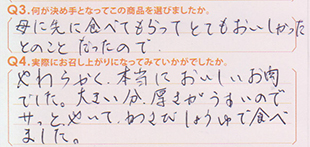 Q3.何が決め手となってこの商品を選びましたか。
母に先に食べてもらってとてもおいしかった
とのことだったので.
Q4.実際にお召し上がりになってみていかがでしたか。
やわらかく、本当においしいお肉
でした。大きい分、厚さがうすいので
サッと、やいて、わさびじょうゆで食べ
ました。